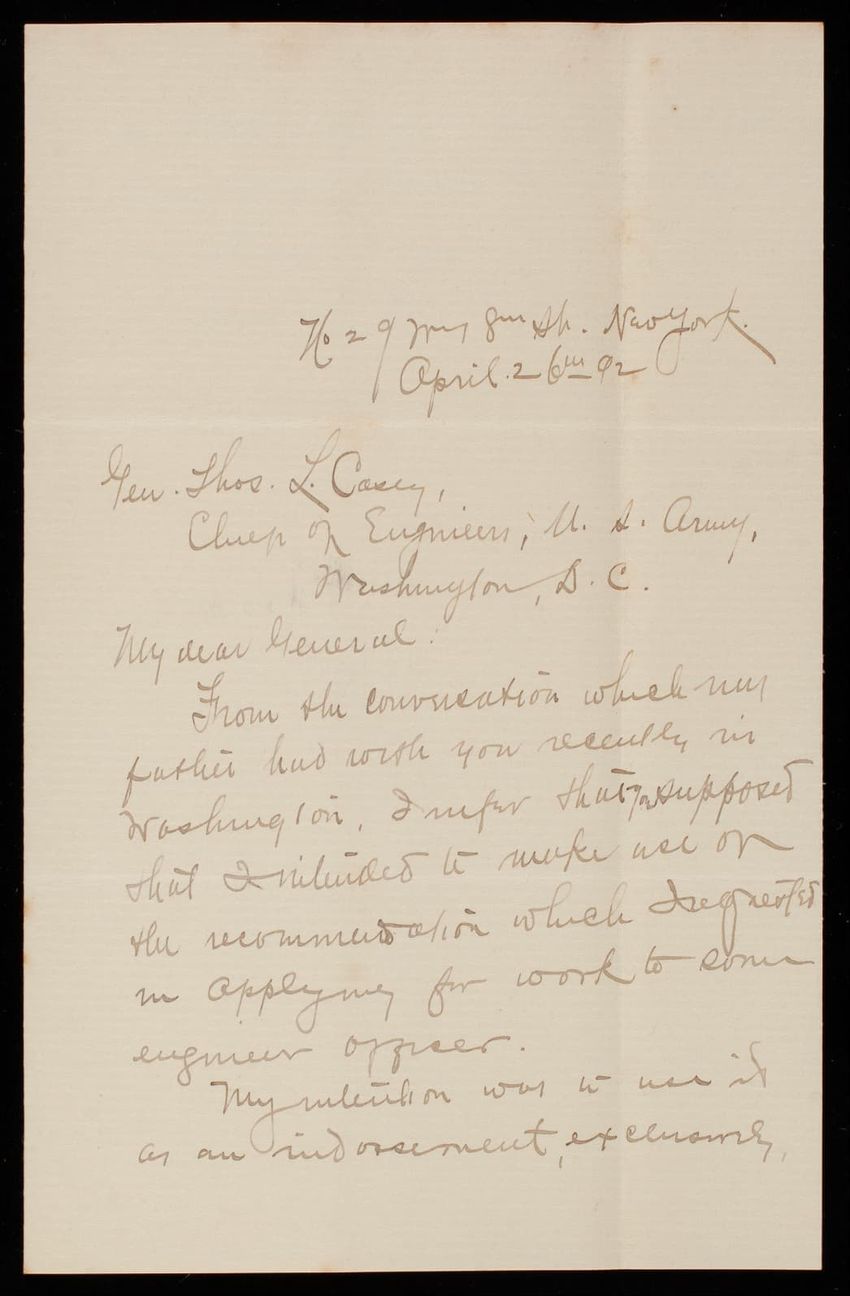 No 29 West 8th St. New York.
April. 26th 92
Gen. Thos. L. Casey,
Chief of Engineers, U. S. Army,
Washington, D. C.
My dear General:
From the conversation which my
father had with you recently in
Washington, I infer that you supposed
that I intended to make use of
the recommendation which I requested
in applying for work to some
engineer officer.
My intention was to use it
as an indorsement, exclusively,